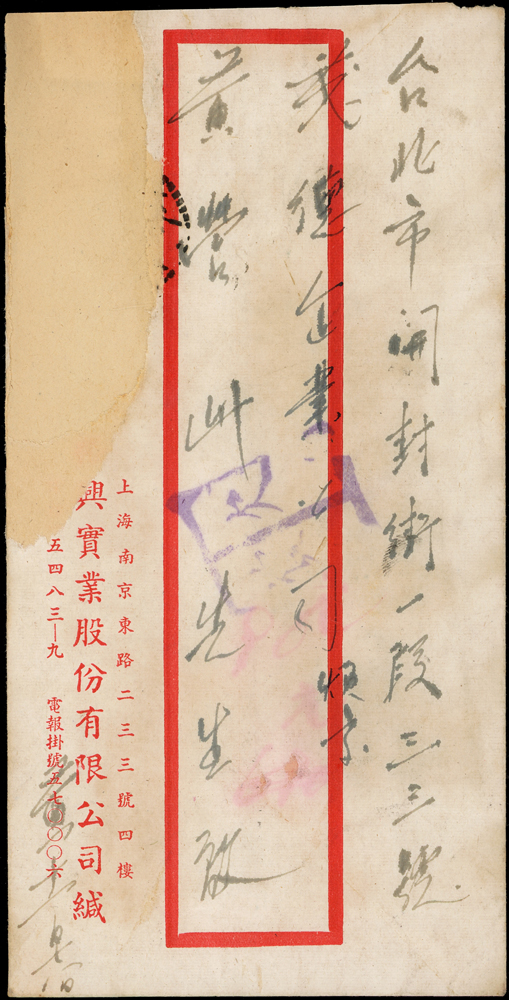 台北市開封街一段三三號
義德企業公司 煩交
黃營洲先生啟
上海南京東路二三三號四樓
興實業股份有限公司緘
五四八三—九 電報掛號五七〇〇〇六